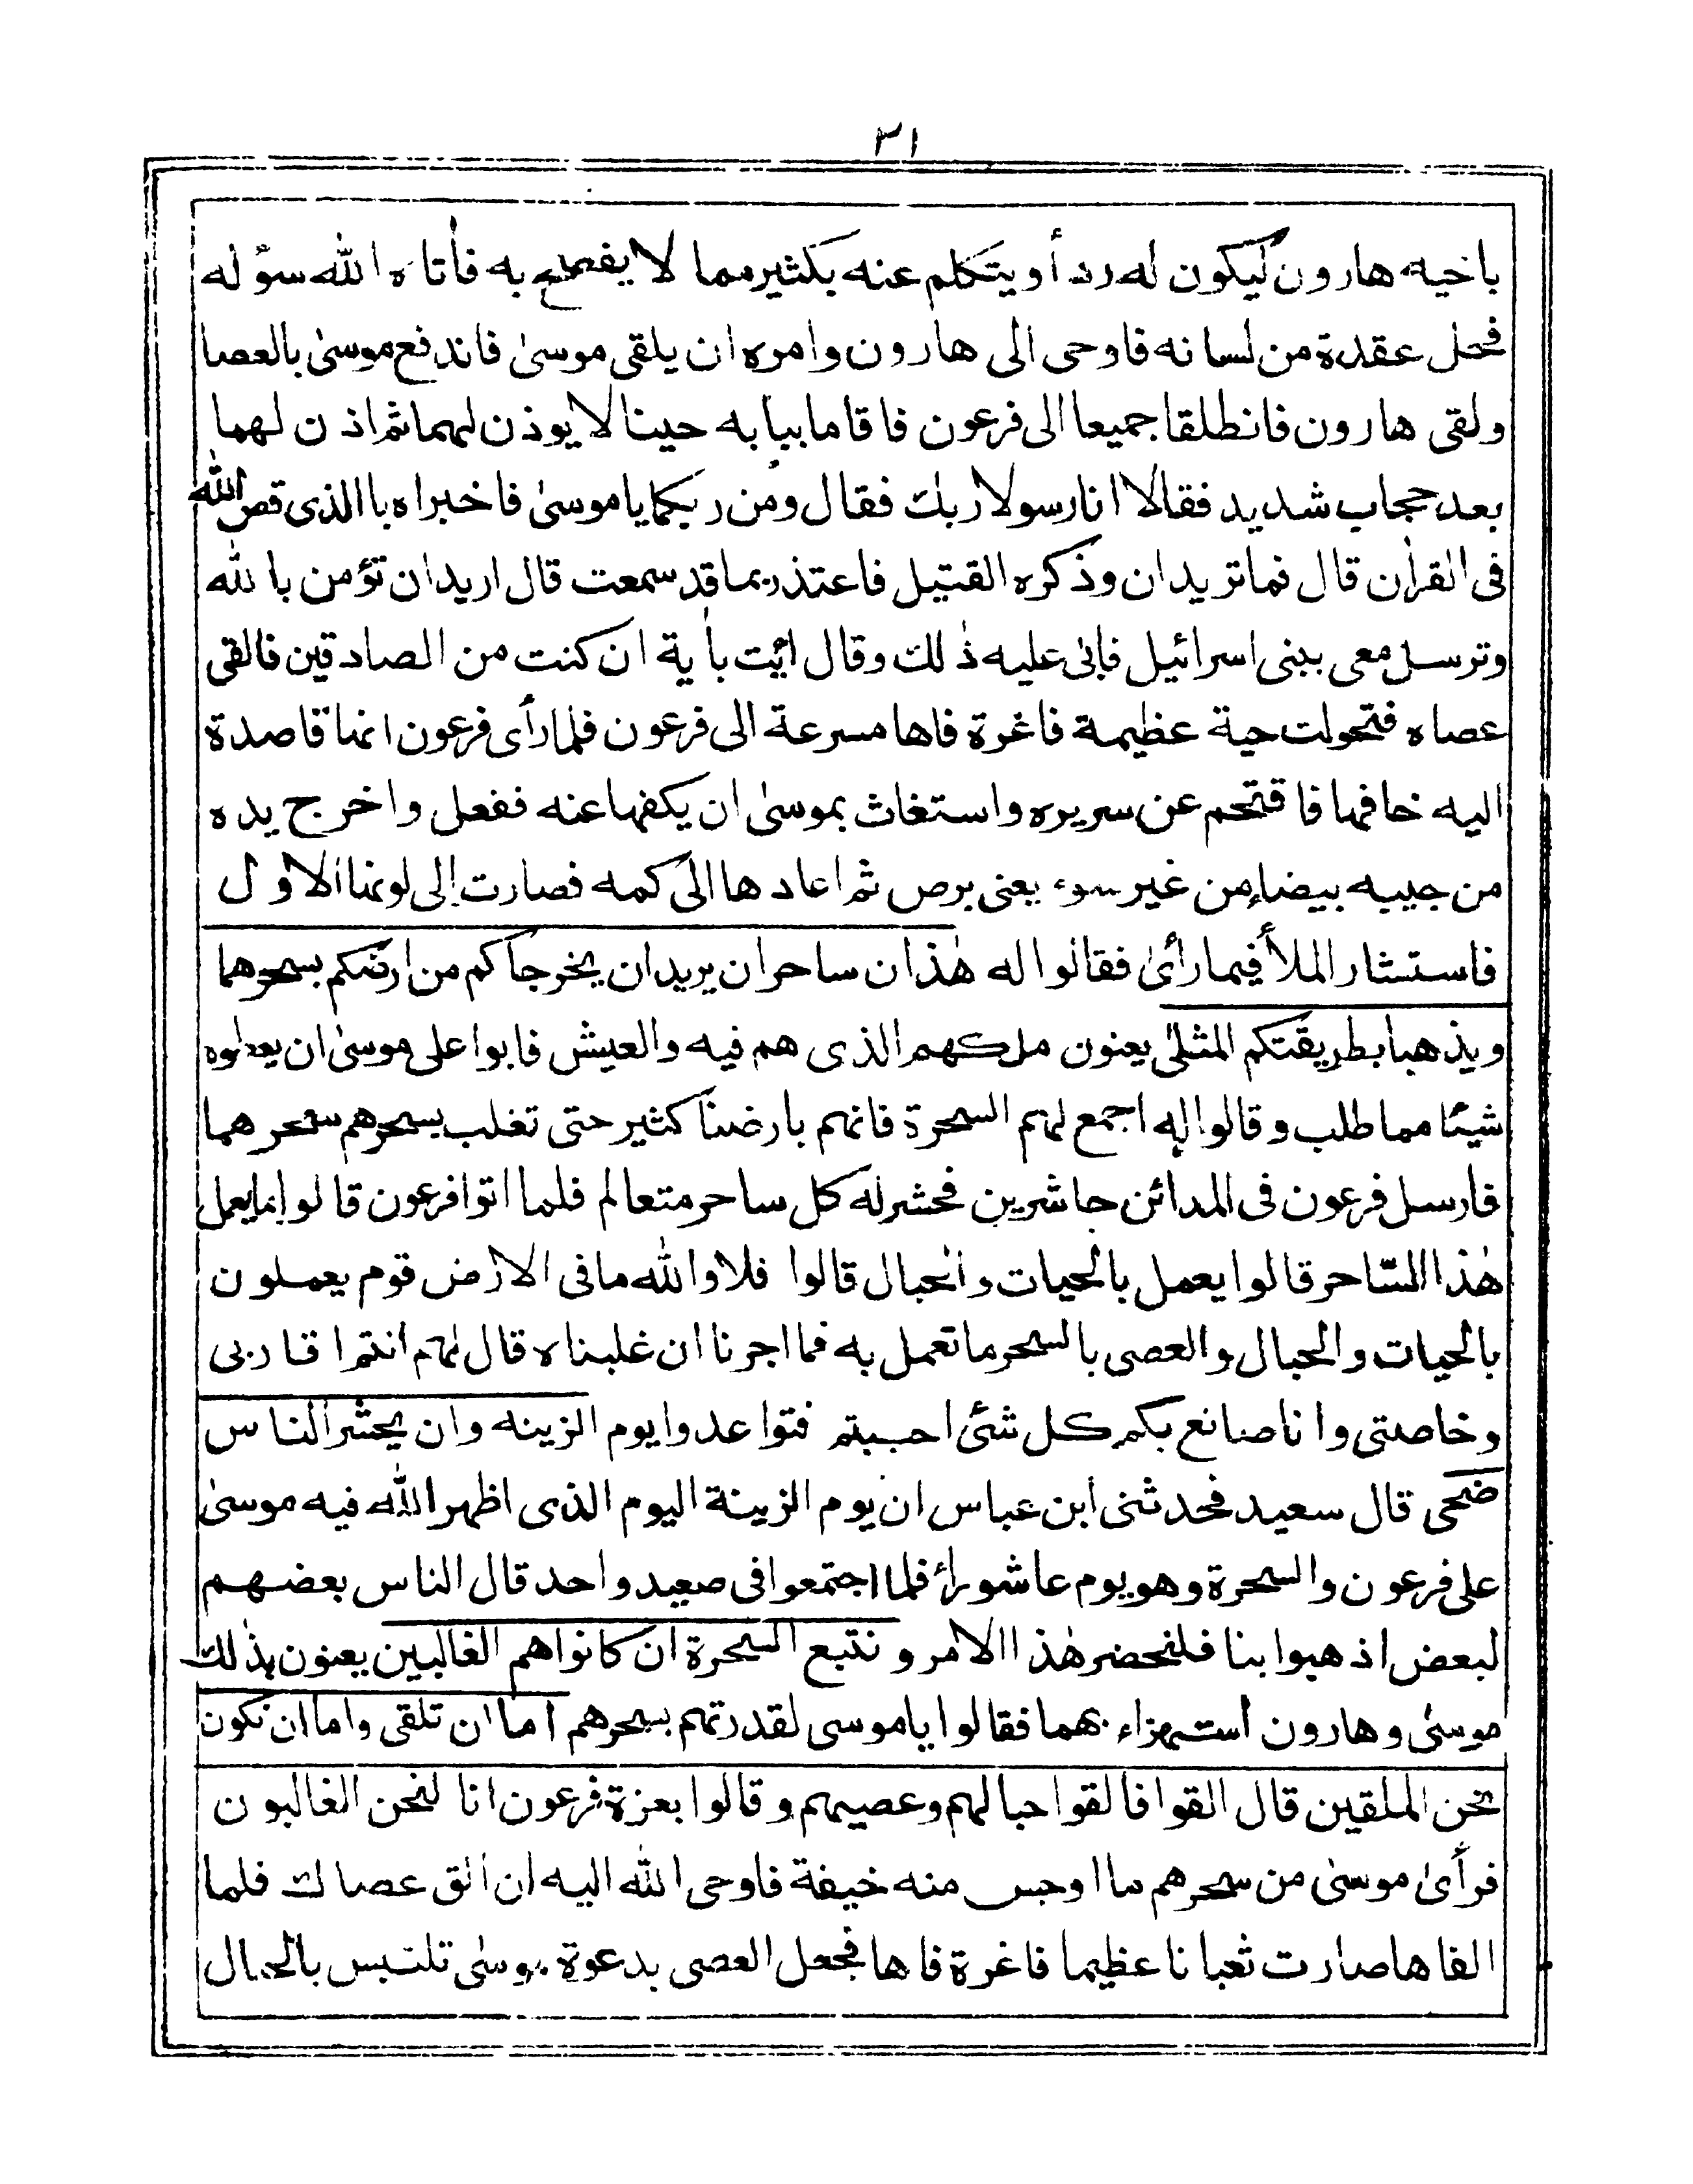 ٣١
باخيه هارون ليكون له ردأ ويتكلم عنه بكثير مما لا يفصح به فأتاه الله سؤله
فحل عقدة من لسانه فاوحى الى هارون وامره ان يلقى موسىٰ فاندفع موسىٰ بالعصا
ولقى هارون فانطلقا جميعا الى فرعون فاقاما ببابه حينا لا يوذن لهما ثم اذن لهما
بعد حجاب شديد فقالا انا رسولا ربك فقال ومن ربكما يا موسىٰ فاخبراه باالذى قص الله
فى القرأن قال فما تريدان وذكره القتيل فاعتذر بما قد سمعت قال اريد ان تؤمن بالله
وترسل معى ببنى اسرائيل فابى عليه ذٰلك وقال ائيت بأية ان كنت من الصادقين فالقى
عصاه فتحولت حية عظيمة فاغرة فاها مسرعة الى فرعون فلما رأى فرعون انها قاصدة
اليه خافها فاقتحم عن سريره واستغاث بموسىٰ ان يكفها عنه ففعل واخرج يده
من جيبه بيضاء من غير سوء يعنى برص ثم اعادها الى كمه فصارت إلى لونها الاول
فاستشار الملأ فيما رأىٰ فقالوا له هٰذان ساحران يريدان يخرجاكم من ارضكم بسحرهما
ويذهبا بطريقتكم المثلىٰ يعنون ملكهم الذى هم فيه والعيش فابوا على موسىٰ ان يعطوه
شيئا مما طلب وقالوا له اجمع لهم السحرة فانهم بارضنا كثير حتى تغلب بسحرهم سحرهما
فارسل فرعون فى المدائن حاشرين فحشر له كل ساحر متعالم فلما اتوا فرعون قالوا بما يعمل
هٰذا السّاحر قالوا يعمل بالحيات والحبال قالوا فلا والله ما فى الارض قوم يعملون
بالحيات والحبال والعصى بالسحر ما تعمل به فما اجرنا ان غلبناه قال لهم انتم اقاربى
وخاصتى وانا صانع بكم كل شئ احببتم فتواعدوا يوم الزينه وان يحشر الناس
ضحى قال سعيد فحدثنى ابن عباس ان يوم الزينة اليوم الذى اظهر الله فيه موسىٰ
على فرعون والسحرة وهو يوم عاشوراء فلما اجتمعوا فى صعيد واحد قال الناس بعضهم
لبعض اذهبوا بنا فلنحضر هٰذا الامر ونتبع السحرة ان كانوا هم الغالبين يعنون بذٰلك
موسىٰ وهارون استهزاء بهما فقالوا يا موسى لقدرتهم بسحرهم اما ان تلقى واما ان نكون
نحن الملقين قال القوا فالقوا حبالهم وعصيهم وقالوا بعزة فرعون انا لنحن الغالبون
فرأىٰ موسىٰ من سحرهم ما اوجس منه خيفة فاوحى الله اليه ان الق عصاك فلما
القاها صارت ثعبانا عظيما فاغرة فاها فجعل العصى بدعوة موسٰى تلتبس بالحبال